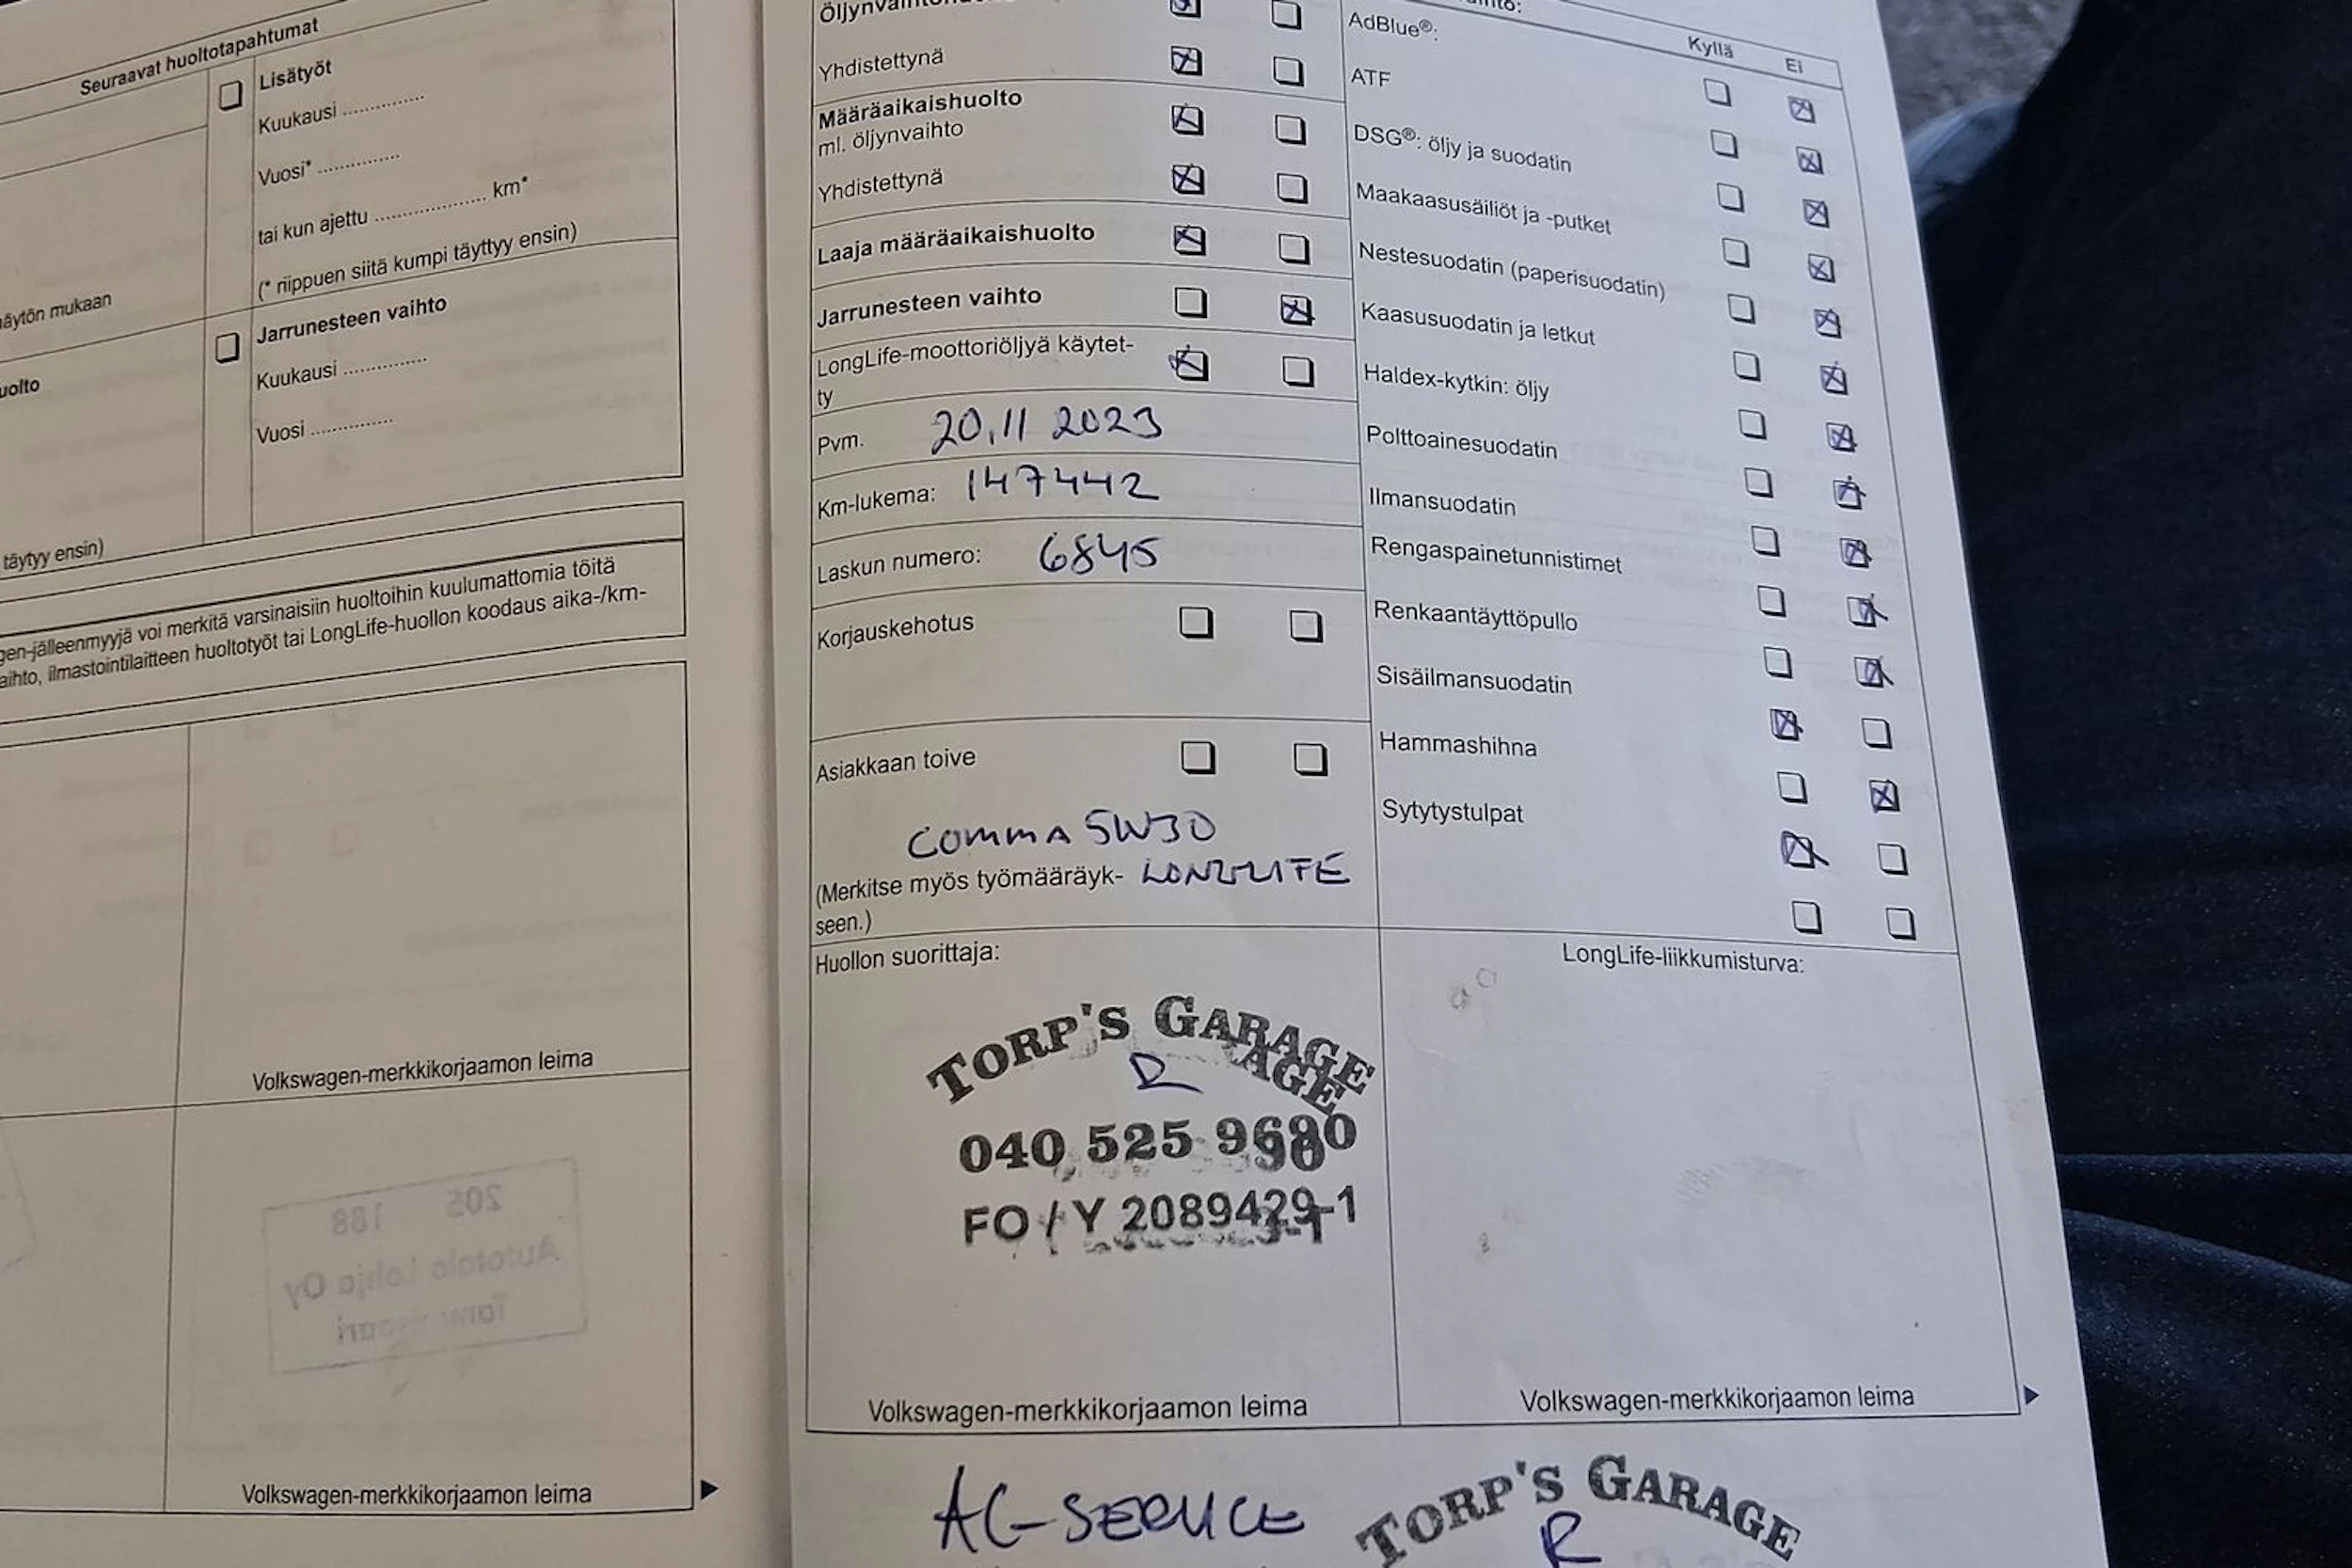 Seuraavat huoltotapahtumat
Lisätyöt
Kuukausi ..............
Vuosi* ..............
tai kun ajettu .................... km*
(* riippuen siitä kumpi täyttyy ensin)
mukaan
Jarrunesteen vaihto
Kuukausi ..............
Vuosi ..............
täytyy ensin)
voi merkitä varsinaisiin huoltoihin kuulumattomia töitä
ilmastointilaitteen huoltotyöt tai LongLife-huollon koodaus aika-/km-
Volkswagen-merkkikorjaamon leima
Volkswagen-merkkikorjaamon leima
Yhdistettynä
Määräaikaishuolto
ml. öljynvaihto
Yhdistettynä
Laaja määräaikaishuolto
Jarrunesteen vaihto
LongLife-moottoriöljyä käytet-
ty
Pvm. 20.11 2023
Km-lukema: 147442
Laskun numero: 6845
Korjauskehotus
Asiakkaan toive
COMMA 5W30
(Merkitse myös työmääräyk- LONGLIFE
seen.)
Huollon suorittaja:
TORP'S GARAGE
040 525
FO / Y 2089429-1
Volkswagen-merkkikorjaamon leima
AdBlue®:
Kyllä Ei
ATF
DSG®: öljy ja suodatin
Maakaasusäiliöt ja -putket
Nestesuodatin (paperisuodatin)
Kaasusuodatin ja letkut
Haldex-kytkin: öljy
Polttoainesuodatin
Ilmansuodatin
Rengaspainetunnistimet
Renkaantäyttöpullo
Sisäilmansuodatin
Hammashihna
Sytytystulpat
LongLife-liikkumisturva:
Volkswagen-merkkikorjaamon leima
AC-SERVICE
TORP'S GARAGE